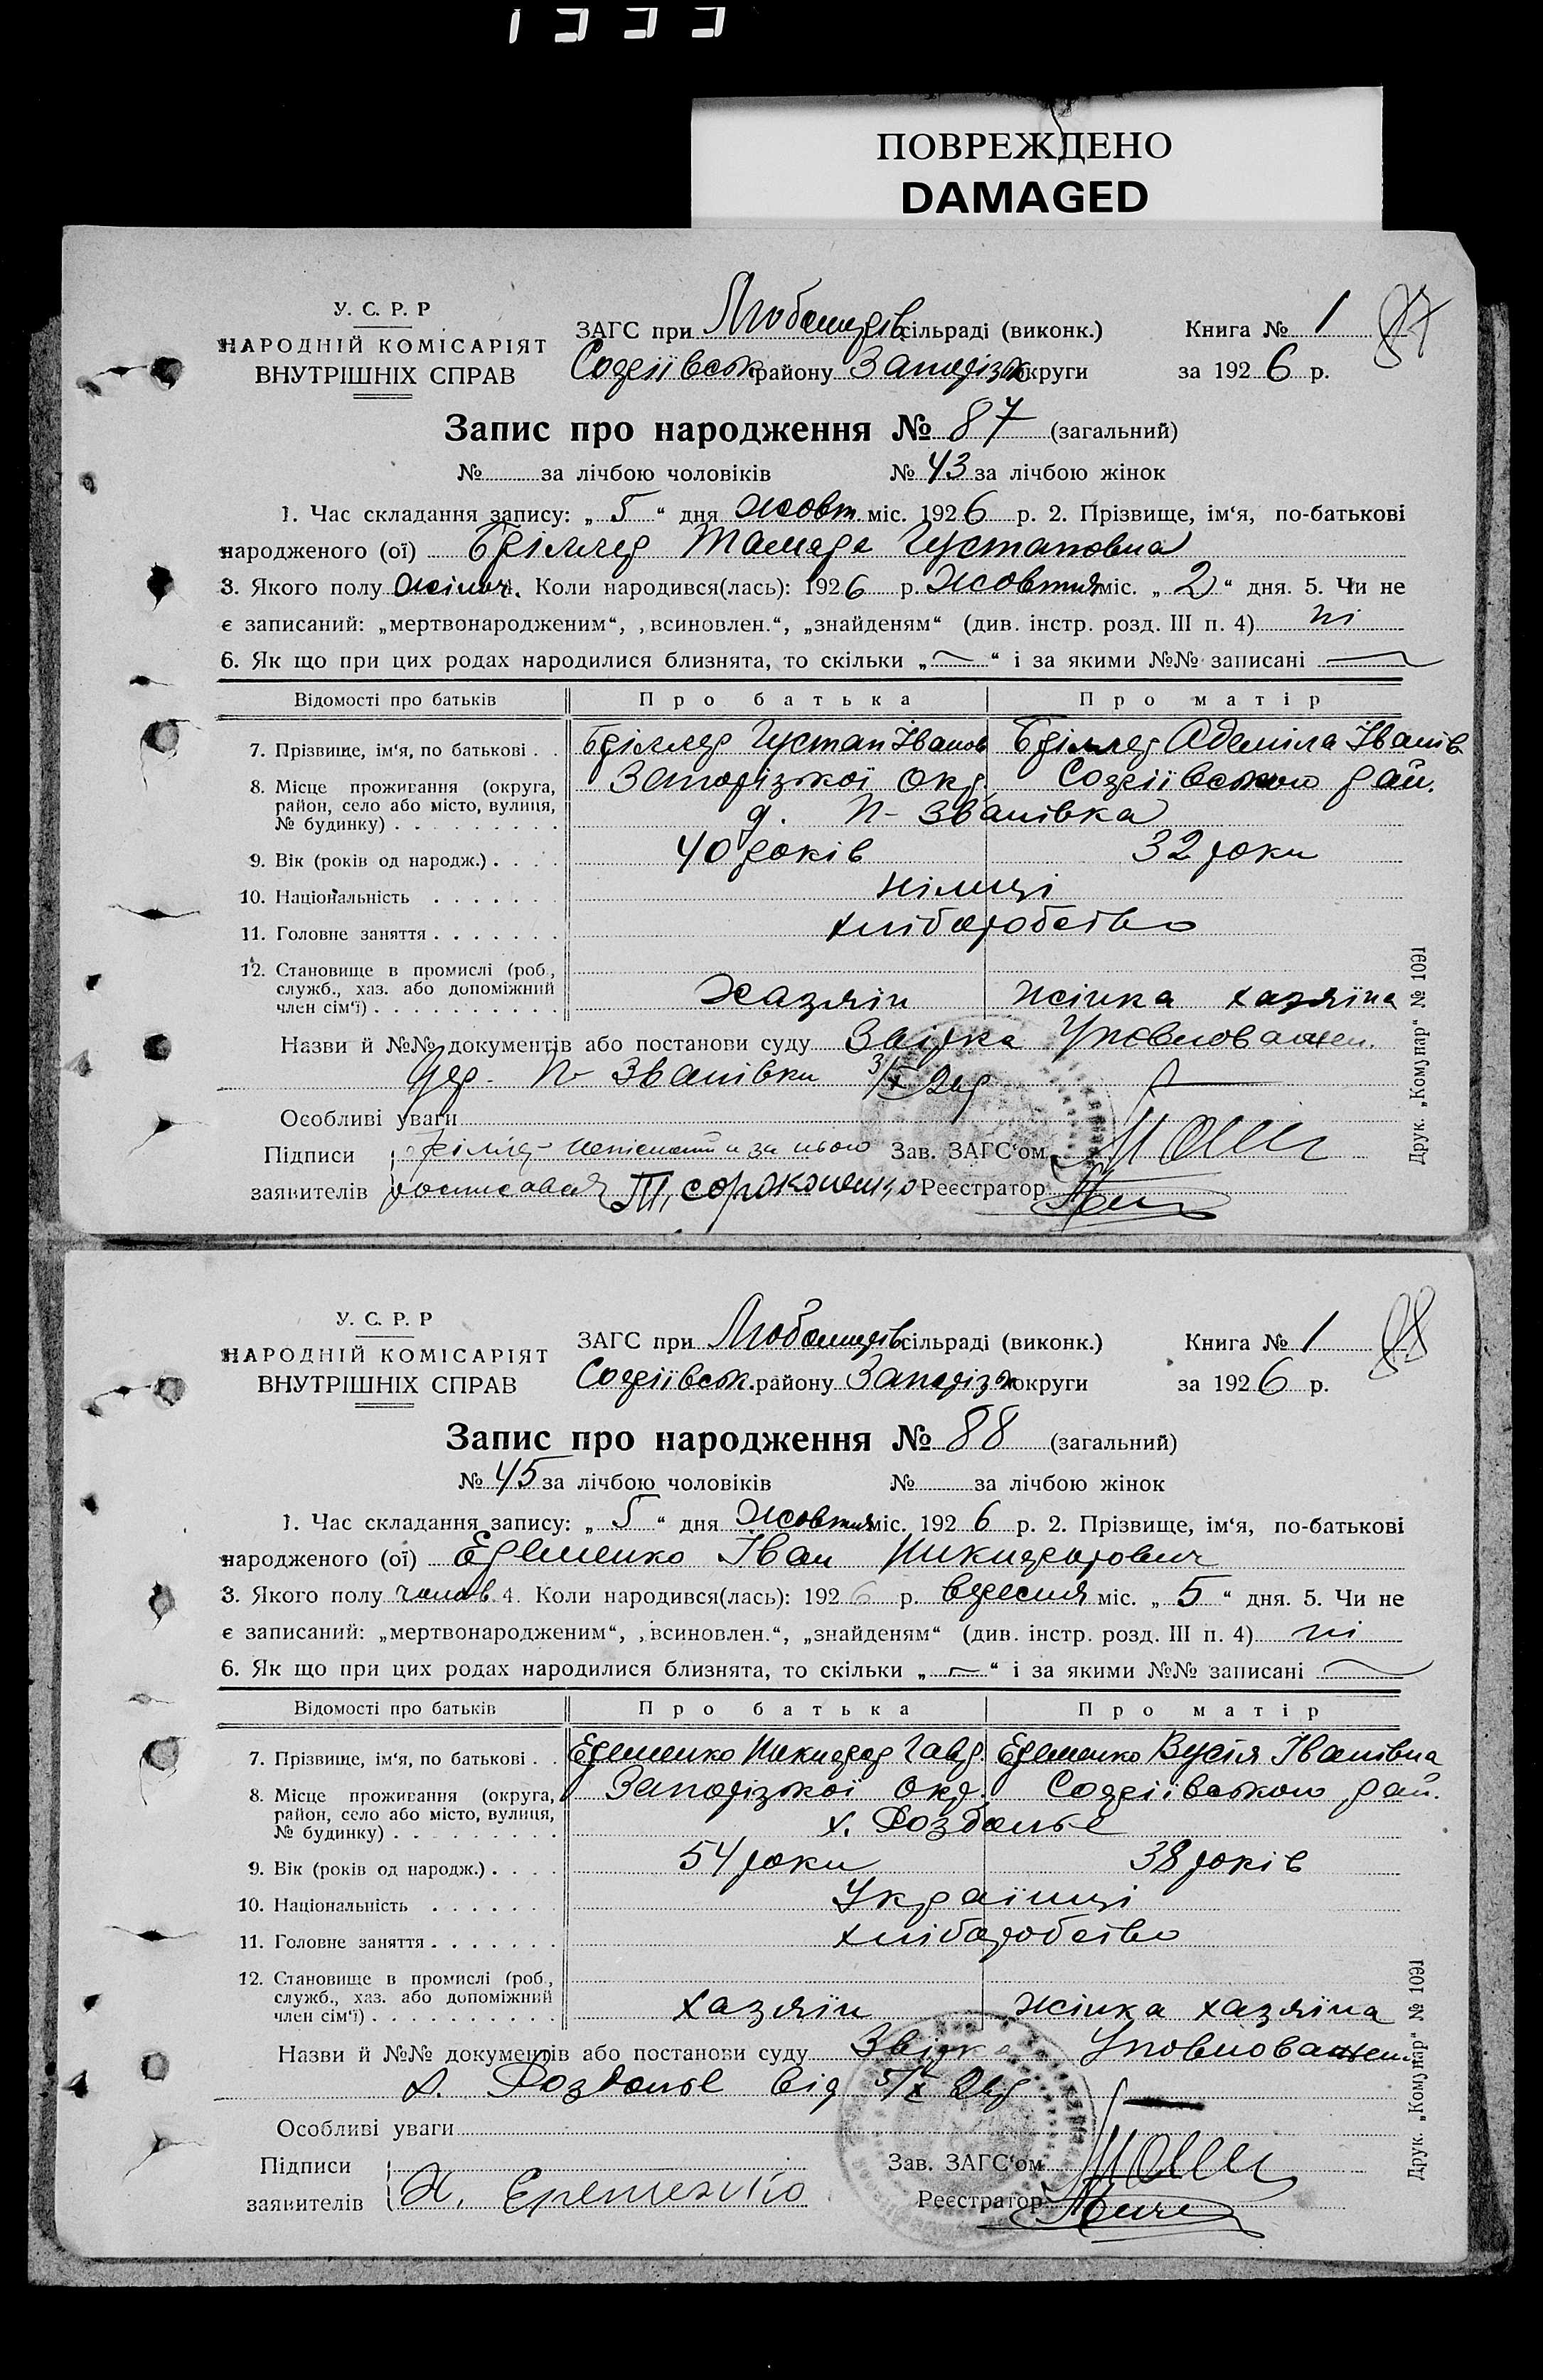 ПОВРЕЖДЕНО
DAMAGED
У. С. Р. Р
НАРОДНІЙ КОМІСАРІЯТ
ВНУТРІШНІХ СПРАВ
ЗАГС при Любамирів сільраді (виконк.)
Книга № 1
87
Софіївськ району Запоріж округи
за 1926 р.
Запис про народження № 87 (загальний)
№ за лічбою чоловіків № 43 за лічбою жінок
1. Час складання запису: „ 5 “ дня жовт. міс. 1926 р. 2. Прізвище, ім‘я, по-батькові
народженого (ої) Тамара Густаповна
3. Якого полу жіноч. 4. Коли народився(лась): 1926 р. жовтня міс. „ 2 “ дня. 5. Чи не
є записаний: „мертвонародженим“, „всиновлен.“, „знайденям“ (див. інстр. розд. III п. 4) ні
6. Як що при цих родах народилися близнята, то скільки „ — “ і за якими №№ записані —
Відомості про батьків Про батька Про матір
7. Прізвище, ім‘я, по батькові . . Густап Іванов Іванів
8. Місце проживання (округа, район, село або місто, вулиця, № будинку) Запорізької окр. Софіївського рай.
д. П- Званівка
9. Вік (років од народж.) 40 років 32 роки
10. Національність німці
11. Головне заняття хліборобство
12. Становище в промислі (роб., служб., хаз. або допоміжний член сім‘ї) Хазяїн жінка хазяїна
Назви й №№ документів або постанови суду Звірка Уповноважен.
П- Званівки 3/X 26р
Особливі уваги
Підписи заявителів за нього
Т. Сороконенко
Зав. ЗАГС‘ом
Реєстратор
Друк. „Комунар“ № 1091
У. С. Р. Р
НАРОДНІЙ КОМІСАРІЯТ
ВНУТРІШНІХ СПРАВ
ЗАГС при Любамирів сільраді (виконк.)
Книга № 1
88
Софіївськ. району Запоріж округи
за 1926 р.
Запис про народження № 88 (загальний)
№ 45 за лічбою чоловіків № за лічбою жінок
1. Час складання запису: „ 5 “ дня жовтня міс. 1926 р. 2. Прізвище, ім‘я, по-батькові
народженого (ої) Єременко Іван Никифорович
3. Якого полу чолов. 4. Коли народився(лась): 1926 р. вересня міс. „ 5 “ дня. 5. Чи не
є записаний: „мертвонародженим“, „всиновлен.“, „знайденям“ (див. інстр. розд. III п. 4) ні
6. Як що при цих родах народилися близнята, то скільки „ — “ і за якими №№ записані —
Відомості про батьків Про батька Про матір
7. Прізвище, ім‘я, по батькові . . Єременко Никифор Гавр. Єременко Іванівна
8. Місце проживання (округа, район, село або місто, вулиця, № будинку) Запорізької окр. Софіївського рай.
х. Роздольє
9. Вік (років од народж.) 54 роки 38 років
10. Національність Українці
11. Головне заняття хліборобство
12. Становище в промислі (роб., служб., хаз. або допоміжний член сім‘ї) хазяїн жінка хазяїна
Назви й №№ документів або постанови суду Звірка Уповноважен.
х. Роздольє від 5/X 26р
Особливі уваги
Підписи заявителів Н. Еременко
Зав. ЗАГС‘ом
Реєстратор
Друк. „Комунар“ № 1091